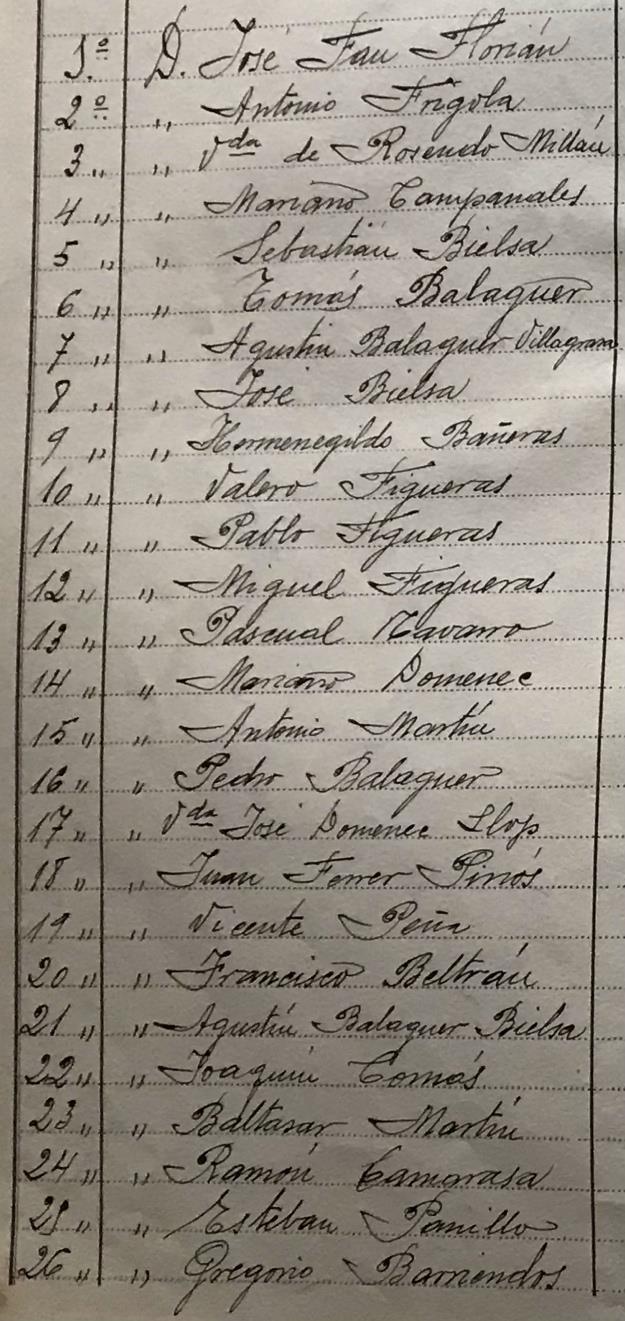 1.º D. José Fau Florián
2º „ Antonio Frigola
3 „ „ Vda de Rosendo Millán
4 „ „ Mariano Campanales
5 „ „ Sebastián Bielsa
6 „ „ Tomás Balaguer
7 „ „ Agustín Balaguer Villagrasa
8 „ „ José Bielsa
9 „ „ Hermenegildo Bañeras
10 „ „ Valero Figueras
11 „ „ Pablo Figueras
12 „ „ Miguel Figueras
13 „ „ Pascual Navarro
14 „ „ Mariano Domenec
15 „ „ Antonio Martín
16 „ „ Pedro Balaguer
17 „ „ Vda José Domenec Llop
18 „ „ Juan Ferrer Pinós
19 „ „ Vicente Peña
20 „ „ Francisco Beltrán
21 „ „ Agustín Balaguer Bielsa
22 „ „ Joaquín Tomás
23 „ „ Baltasar Martín
24 „ „ Ramón Camarasa
25 „ „ Esteban Panillo
26 „ „ Gregorio Barriendos